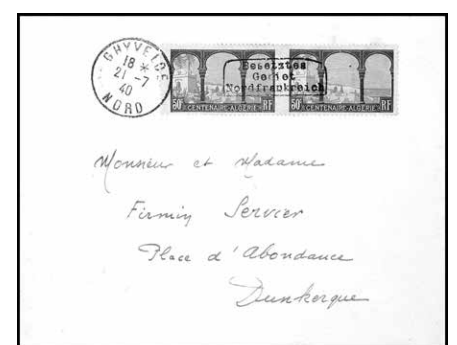 GHYVELDE
18 *
21 -7
40
NORD
Besetztes
Gebiet
Nordfrankreich
50c CENTENAIRE-ALGÉRIE RF
50c CENTENAIRE-ALGÉRIE RF
Monsieur et Madame
Firmin Servier
Place d'Abondance
Dunkerque